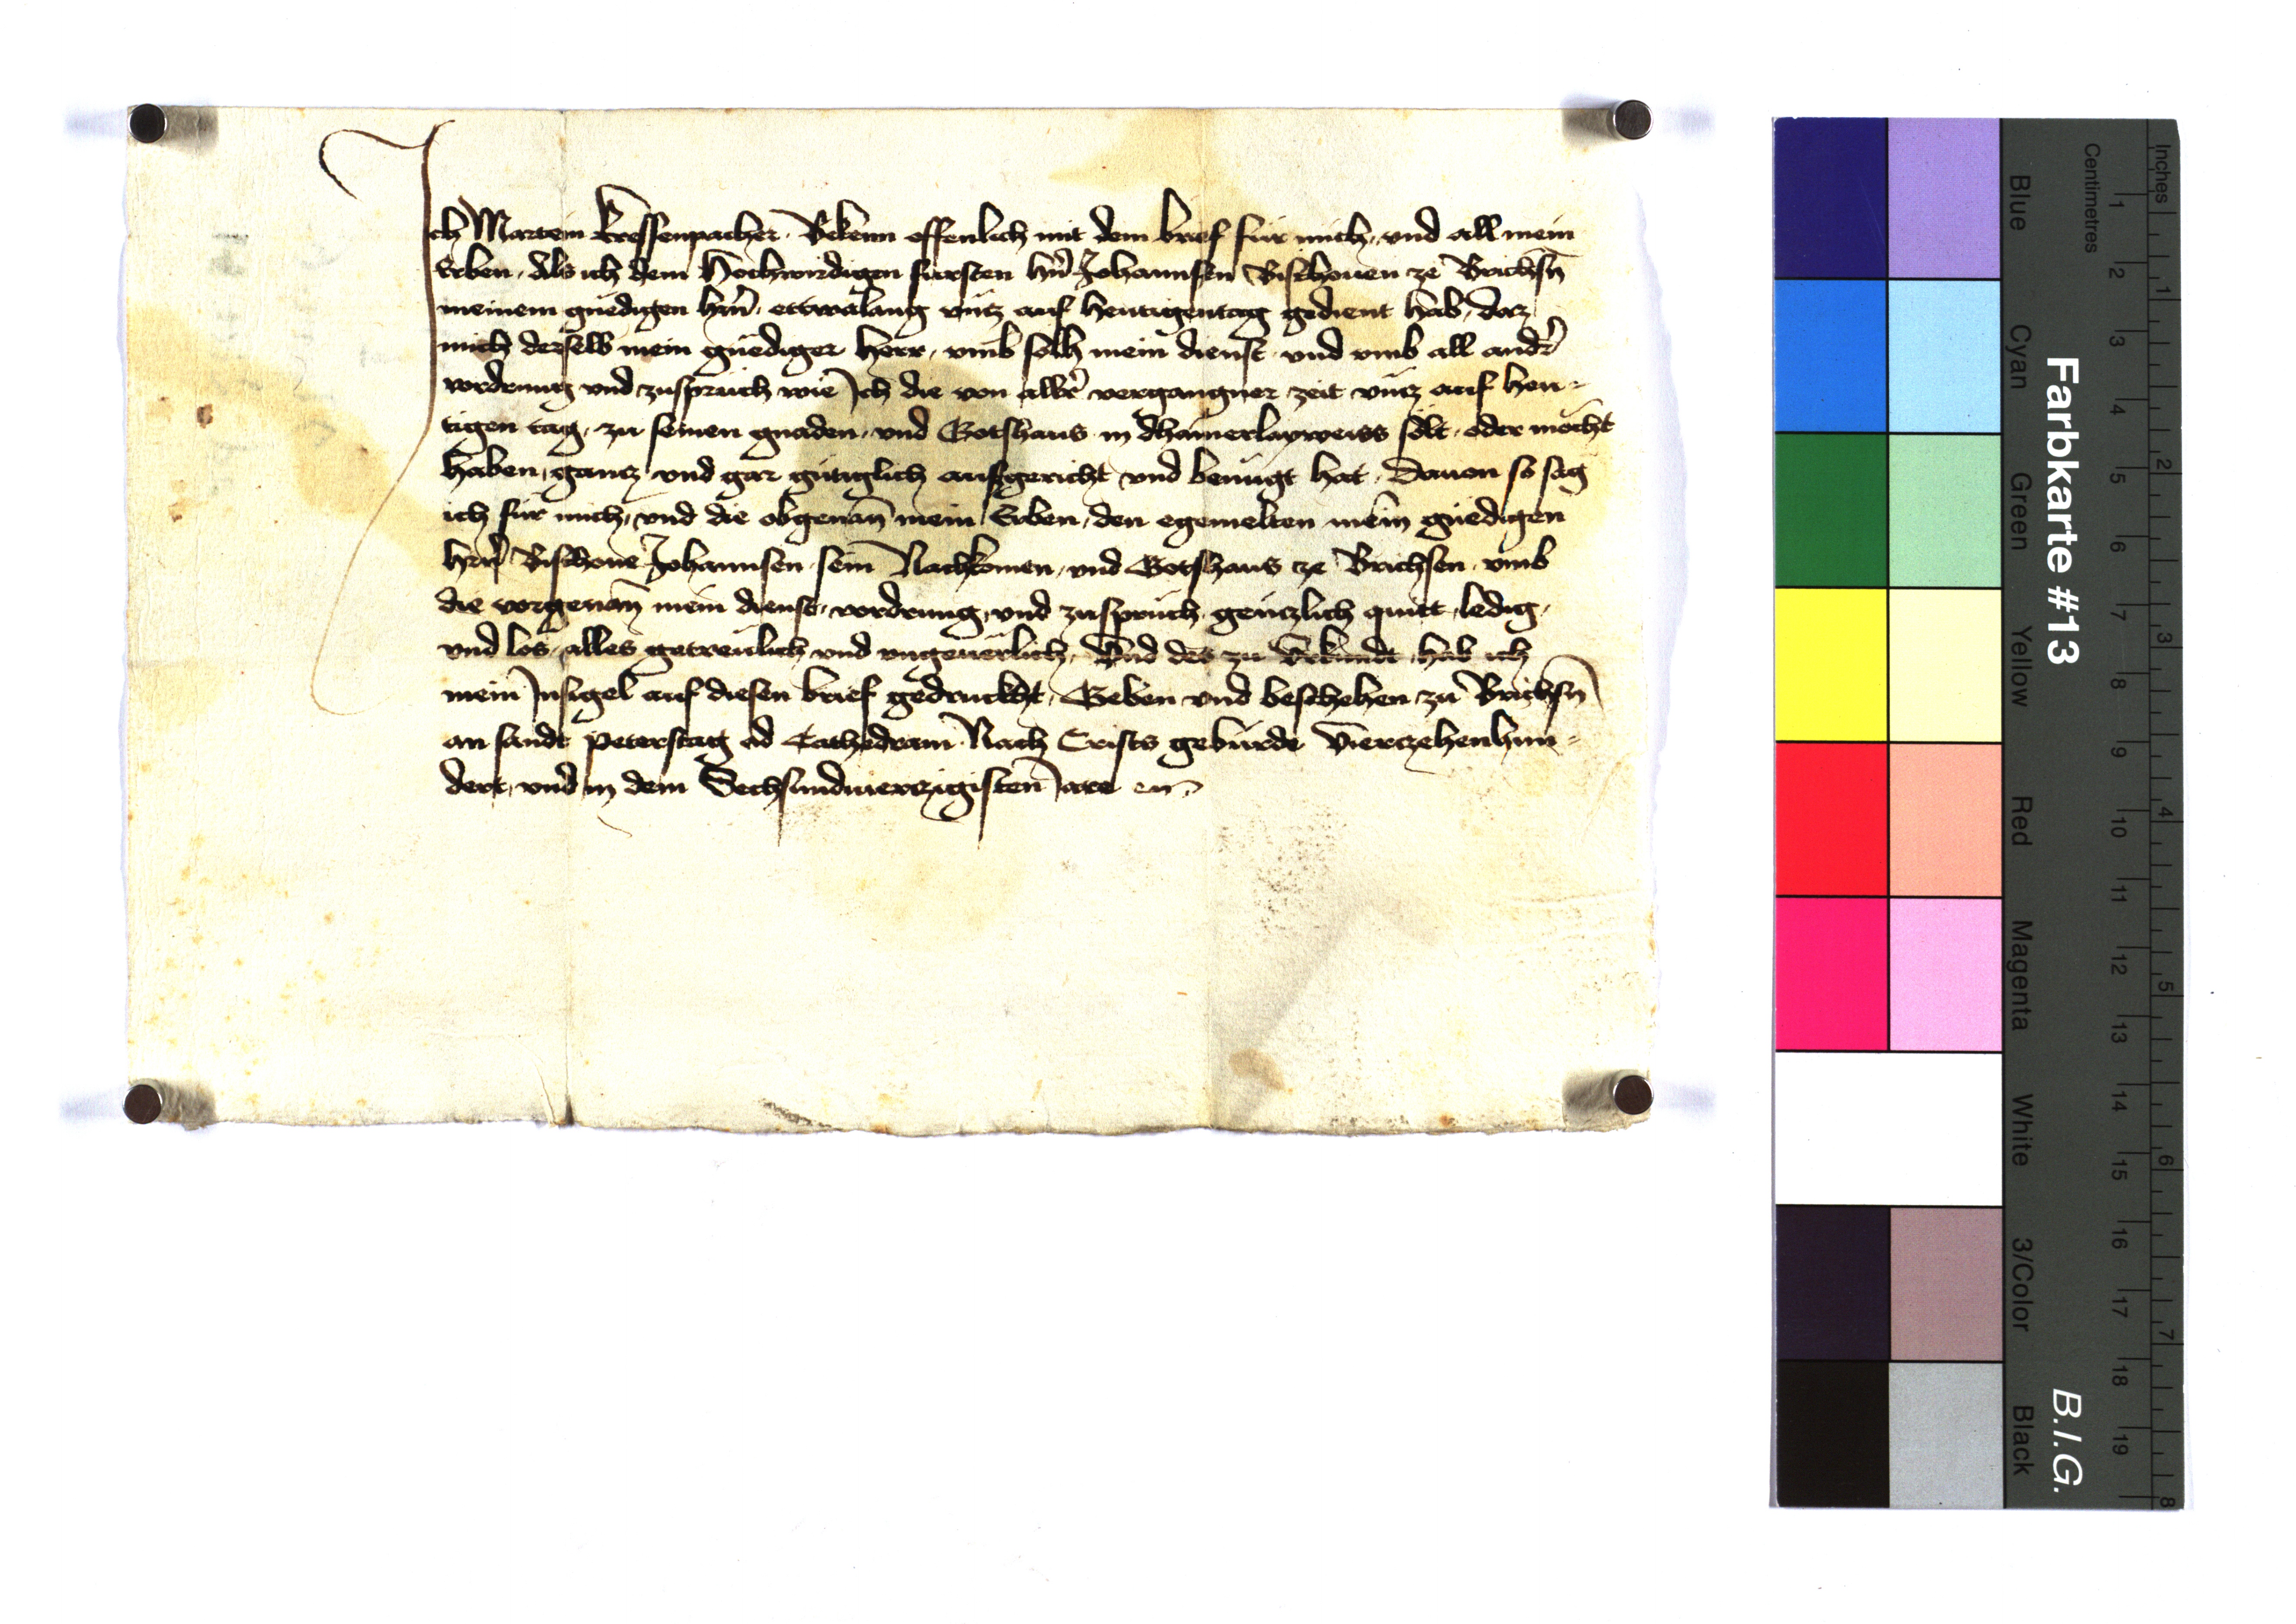 Ich Martein kressenpacher. Bekenn offenlich mit dem brief für mich, vnd all mein
Erben, Als ich dem Hochwirdigen fürsten hn̄ Johannsen Bischouen ze Brichsn̄
meinem gnedigen hrn̄, ettwalang vntz auf hewtigentag gedient hab, daz
mich derselb mein gnediger Herr, vmb solh mein dienst, vnd vmb all andr̄
vordrung vnd zuspruch wie Ich die von allr̄ vergangner zeit vntz auf hew-
tigen tag, zu seinen gnaden, vnd Gotshaus in dhainerlayweiss solt, oder möcht
haben, gantz vnd gar gütiglich ausgericht vnd benügt hat, Dauon so sag
ich für mich, vnd die obgenan̄ mein Erben, den egemelten mein̄ gnedigen
hrn̄ Bischoue Johannsen sein̄ Nachkomen, vnd Gotshaus ze Brichsen, vmb
die vorgenan̄ mein dienst, vordrung, vnd zuspruch, gentzlich quitt, ledig,
vnd los, alles getreulich vnd vngeuerlich, Vnd des zu Vrkundt, hab ich
mein Insigel auf diesen brief gedruckht, Geben vnd beschehen zu Brichsn̄
an sandt Peterstag ad Cathedram Nach Crists gebürde Vierczehenhun-
dert, vnd in dem Sechsundvierczigisten Jare
Farbkarte #13
B.I.G.
Blue Cyan Green Yellow Red Magenta White 3/Color Black
Centimetres 1 2 3 4 5 6 7 8 9 10 11 12 13 14 15 16 17 18 19
Inches 1 2 3 4 5 6 7 8